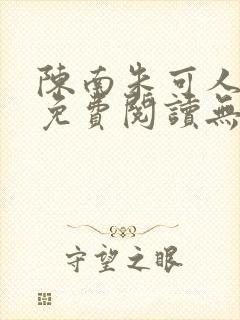 陳南朱可人
免費閱讀無
守望之眼